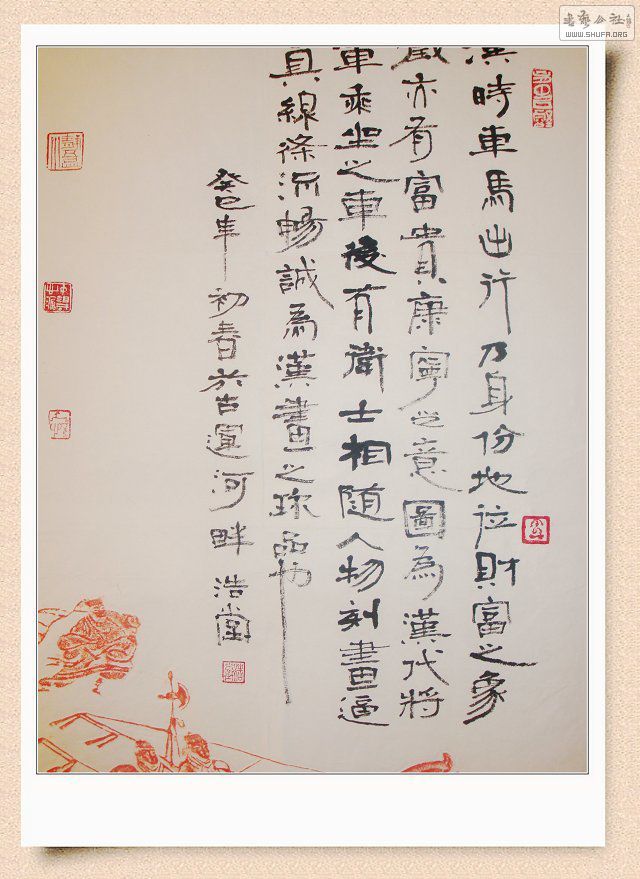 书艺公社
WWW.SHUFA.ORG
漢時車馬出行乃身份地位財富之象
徵亦有富貴康寧之意圖為漢代將
軍乘坐之車後有衛士相随人物刻畫逼
真線條流暢誠為漢畫之珎品也
癸巳年初春於古運河畔浩堂